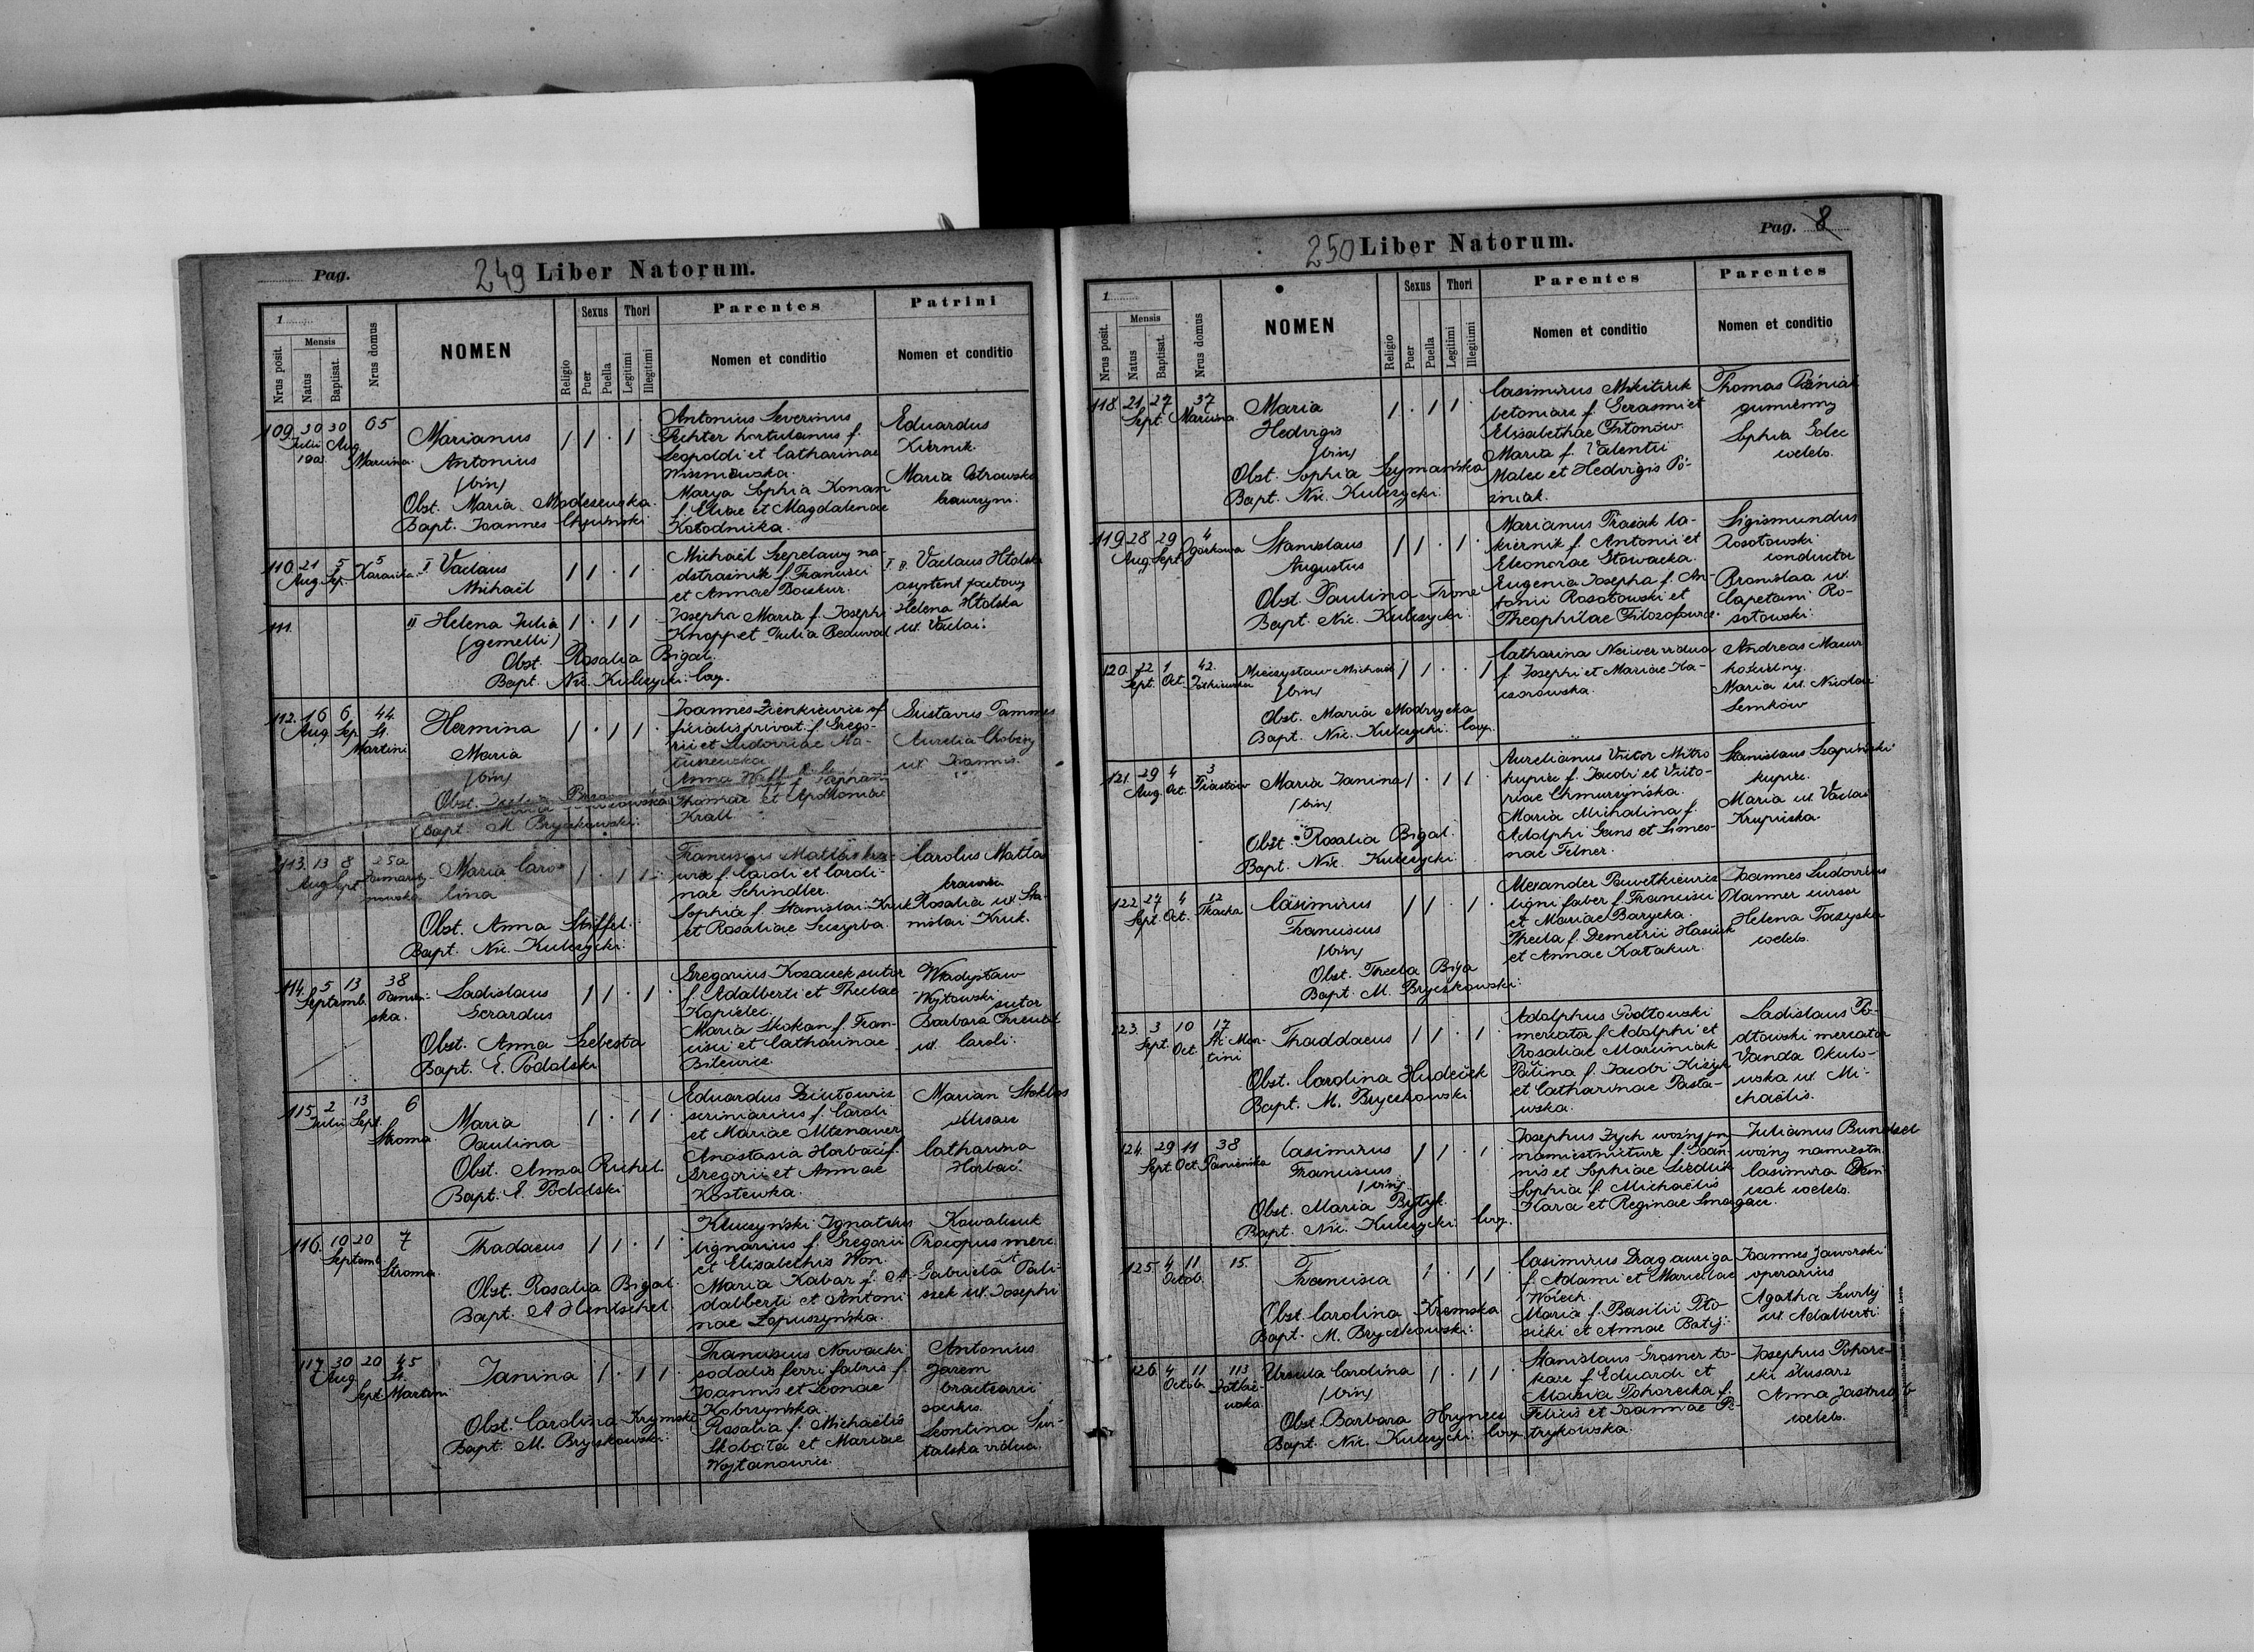 Pag.
249 Liber Natorum.
1
Nrus posit.
Mensis
Natus
Baptisat.
Nrus domus
NOMEN
Religio
Sexus
Puer
Puella
Thori
Legitimi
Illegitimi
Parentes
Nomen et conditio
Patrini
Nomen et conditio
109. 30 30 65
Julii Aug.
Marianus
Antonius
(bin)
Obst. Maria
Bapt. Joannes
Antonius Severinus
hortulanus f.
Leopoldi et Catharinae
Wiszniowska.
Marya Sophia Konan
f. Eliae et Magdalenae
Kołodnicka.
Eduardus
Kiernik
Maria Ostrowska
110. 21 5 5
Aug. Sep.
I Vaclaus
Michaël
Michaël Szepelawy na
dstrażnik f. Francisci
et Annae
I p. Vaclaus
asystent
111.
II Helena Julia
(gemelli)
Obst. Rosalia Bigal.
Bapt. Nic. Kulczycki: Coop.
Josepha Maria f. Josephi
Knopp et Julia
Helena
ux. Vaclai.
112. 16 6 44.
Aug. Sep. St.
Martini
Hermina
Maria
(bin)
Obst.
Bapt. M. Bryczkowski:
Joannes Zienkiewicz of
ficialis privat. f. Grego-
rii et Ludovicae Ma-
tuszewska
Anna
Thomae et Apolloniae
Krall
Gustavus Tammes
Aurelia
ux. Joannis.
113. 13 8 25a
Aug. Sept.
Maria Caro-
lina
Obst. Anna Stiffel.
Bapt. Nic. Kulczycki:
Franciscus Matlas
f. Caroli et Caroli-
nae Schindler.
Sophia f. Stanislai Kruk
et Rosaliae Szczyrba.
Carolus Matla
krawiec
Rosalia ux. Sta-
nislai Kruk.
114. 5 13 38
Septemb. Panień-
ska.
Ladislaus
Gerardus
Obst. Anna Szebesta
Bapt. E. Podolski
Gregorius Kozaczek sutor
f. Adalberti et Theclae
Kapielec.
Maria Skokan f. Fran-
cisci et Catharinae
Bilewicz.
Władysław
Wytowski
sutor
Barbara
ux. Caroli.
115. 2 13 6
Julii Sept.
Stroma.
Maria
Paulina
Obst. Anna Richel.
Bapt. E. Podolski
Eduardus
scriniarius f. Caroli
et Mariae Altenauer
Anastasia Horbać f.
Gregorii et Annae
Kostewka.
Marian Stokłos
ślusarz
Catharina
Horbać.
116. 10 20 7
Septemb.
Stroma.
Thadaeus
Obst. Rosalia Bigal.
Bapt. A Hentschel.
Kluczyński Ignatius
lignarius f. Gregorii
et Elisabethis Won.
Maria Kabar f. A-
dalberti et Antoni
nae Łopuszyńska.
Kowalczuk
Procopus merc.
Gabriela Pali-
szek ux. Josephi
117. 30 20 45
Aug. Sept. St.
Martini
Janina
Obst. Carolina Krymska
Bapt. M. Bryczkowski:
Franciscus Nowacki
sodalis ferri fabris f.
Joannis et Leonae
Kobrzyńska.
Rosalia f. Michaëlis
Skobota et Mariae
Wojtanowicz.
Antonius
Jarem
braitrarii
socius.
Leontina Sur-
talska vidua.
250 Liber Natorum.
Pag. 8
1
Nrus posit.
Mensis
Natus
Baptisat.
Nrus domus
NOMEN
Religio
Sexus
Puer
Puella
Thori
Legitimi
Illegitimi
Parentes
Nomen et conditio
Parentes
Nomen et conditio
118. 21 27 37
Sept. Marcina.
Maria
Hedvigis
(bin)
Obst. Sophia Szymańska
Bapt. Nic. Kulczycki:
Casimirus Mikitiuk
betoniarz f. Gerasmi et
Elisabethae
Maria f. Valentii
Malec et Hedvigis Po-
źniak.
Thomas Poźniak
gumienny
Sophia Golec
coeleb.
119. 28 29 4
Aug. Sept. Ogórkowa
Stanislaus
Augustus
Obst. Paulina Trone
Bapt. Nic. Kulczycki:
Marianus Trasak la-
kiernik f. Antonii et
Eleonorae Głowacka.
Eugenia Josepha f. An-
tonii Rosołowski et
Theophilae Filozofowicz.
Sigismundus
Rosołowski
conductor
Bronislaa ux.
Capetani Ro-
sołowski:
120. 22 1 42.
Sept. Oct. Żółkiewska
Mieczysław Michaël
(bin)
Obst. Maria Modrzycka
Bapt. Nic. Kulczycki: Coop.
Catharina Neriver vidua
f. Josephi et Mariae Ka-
czorowska.
Andreas Mazur
kościelny.
Maria ux. Nicolai
Semków
121. 29 4 3
Aug. Oct. Piastów
Maria Janina
(bin)
Obst. Rosalia Bigal.
Bapt. Nic. Kulczycki:
Aurelianus Victor Mitro
kupiec f. Jacobi et Victo-
riae Chmurzyńska.
Maria Michalina f.
Adolphi Gans et Simeo-
nae Felner.
Stanislaus
kupiec.
Maria ux. Vaclai
Krupicka.
122. 27 4 12
Sept. Oct. Tkacka
Casimirus
Franciscus
(bin)
Obst. Thecla Biga
Bapt. M. Bryczkowski:
Alexander Pawełkiewicz
ligni faber f. Francisci
et Mariae Barycka.
Thecla f. Demetrii Hasiuk
et Annae Kałakur.
Joannes Ludovicus
Planner cursor
Helena Toczyska
coeleb.
123. 3 10 17
Sept. Oct. St. Mar-
tini
Thaddaeus
Obst. Carolina Hudeček
Bapt. M. Bryczkowski
Adolphus Podłowski
mercator f. Adolphi et
Rosaliae Marciniak
f. Jacobi
et Catharinae Pasta-
wska.
Ladislaus Po-
dłowski mercator
Vanda Okulo-
wska ux. Mi-
chaëlis.
124. 29 11 38
Sept. Oct. Panieńska
Casimirus
Franciscus
(bin)
Obst. Maria Bytyk.
Bapt. Nic. Kulczycki: Coop.
Josephus Zych woźny przy
namiestnictwie f. Joan-
nis et Sophiae
Sophia f. Michaëlis
Hara et Reginae Smagacz.
Julianus
woźny namiestn.
Casimira
coeleb.
125. 4 11 15.
Octob.
Francisca
Obst. Carolina Kremska
Bapt. M. Bryczkowski:
Casimirus Drag auriga
f. Adami et Marielae
Wojech.
Maria f. Basilii Pło-
sicki et Annae Batij:
Joannes Jaworski
operarius
Agatha Szurlej
ux. Adalberti:
126. 4 11 113
Octob. Żółkie-
wska
Ursula Carolina
(bin)
Obst. Barbara Hryniec
Bapt. Nic. Kulczycki: Coop.
Stanislaus Grosner to-
karz f. Eduardi et
Maria Pohorecka f.
Felicis et Joannae Pe-
trykowska.
Josephus Pohore-
cki ślusarz
Anna
coeleb.